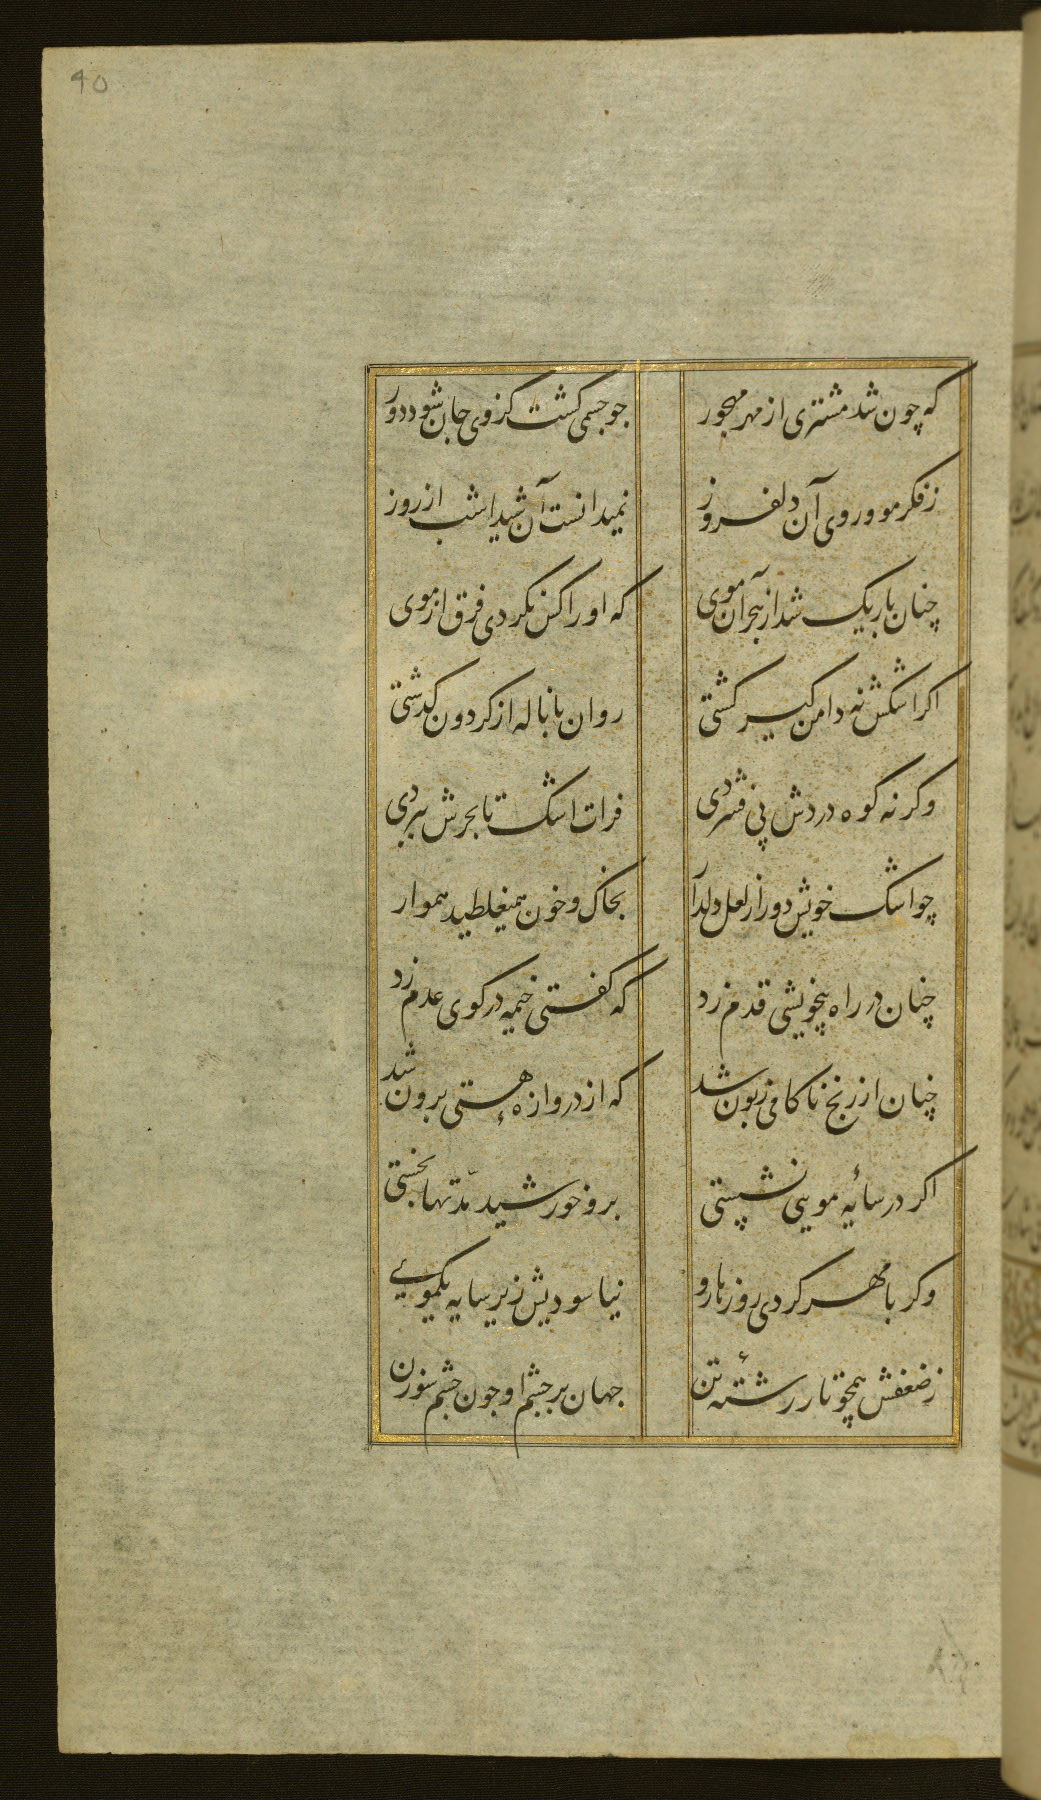 40
که چون شد مشتری از مهر مهجور
جو جسمی کشت کز وی جان شود دور
ز فکر مو و روی آن دلفروز
نمیدانست آن شیدا شب از روز
چنان باریک شد از هجر آن موی
که او را کس نکردی فرق از موی
اکر اشکش نه دامن کیر کشتی
روان با ناله از کردون کذشتی
وکر نه کوه دردش پی فشردی
فرات اشک تا بحرش ببردی
چو اشک خویش دور از لعل دلدار
بخاک و خون همیغلطید هموار
چنان در راه بیخویشی قدم زد
که کفتی خیمه در کوی عدم زد
چنان از رنج ناکامی زبون شد
که از دروازهٔ هستی برون شد
اکر در سایهٔ مویی نشستی
برو خورشید مدتها بجستی
وکر با مهر کردی روز بارو
نیاسودیش زیر سایه یکموی
ز ضعفش همچو تار رشتهٔ تن
جهان بر چشم او جون جشم سوزن